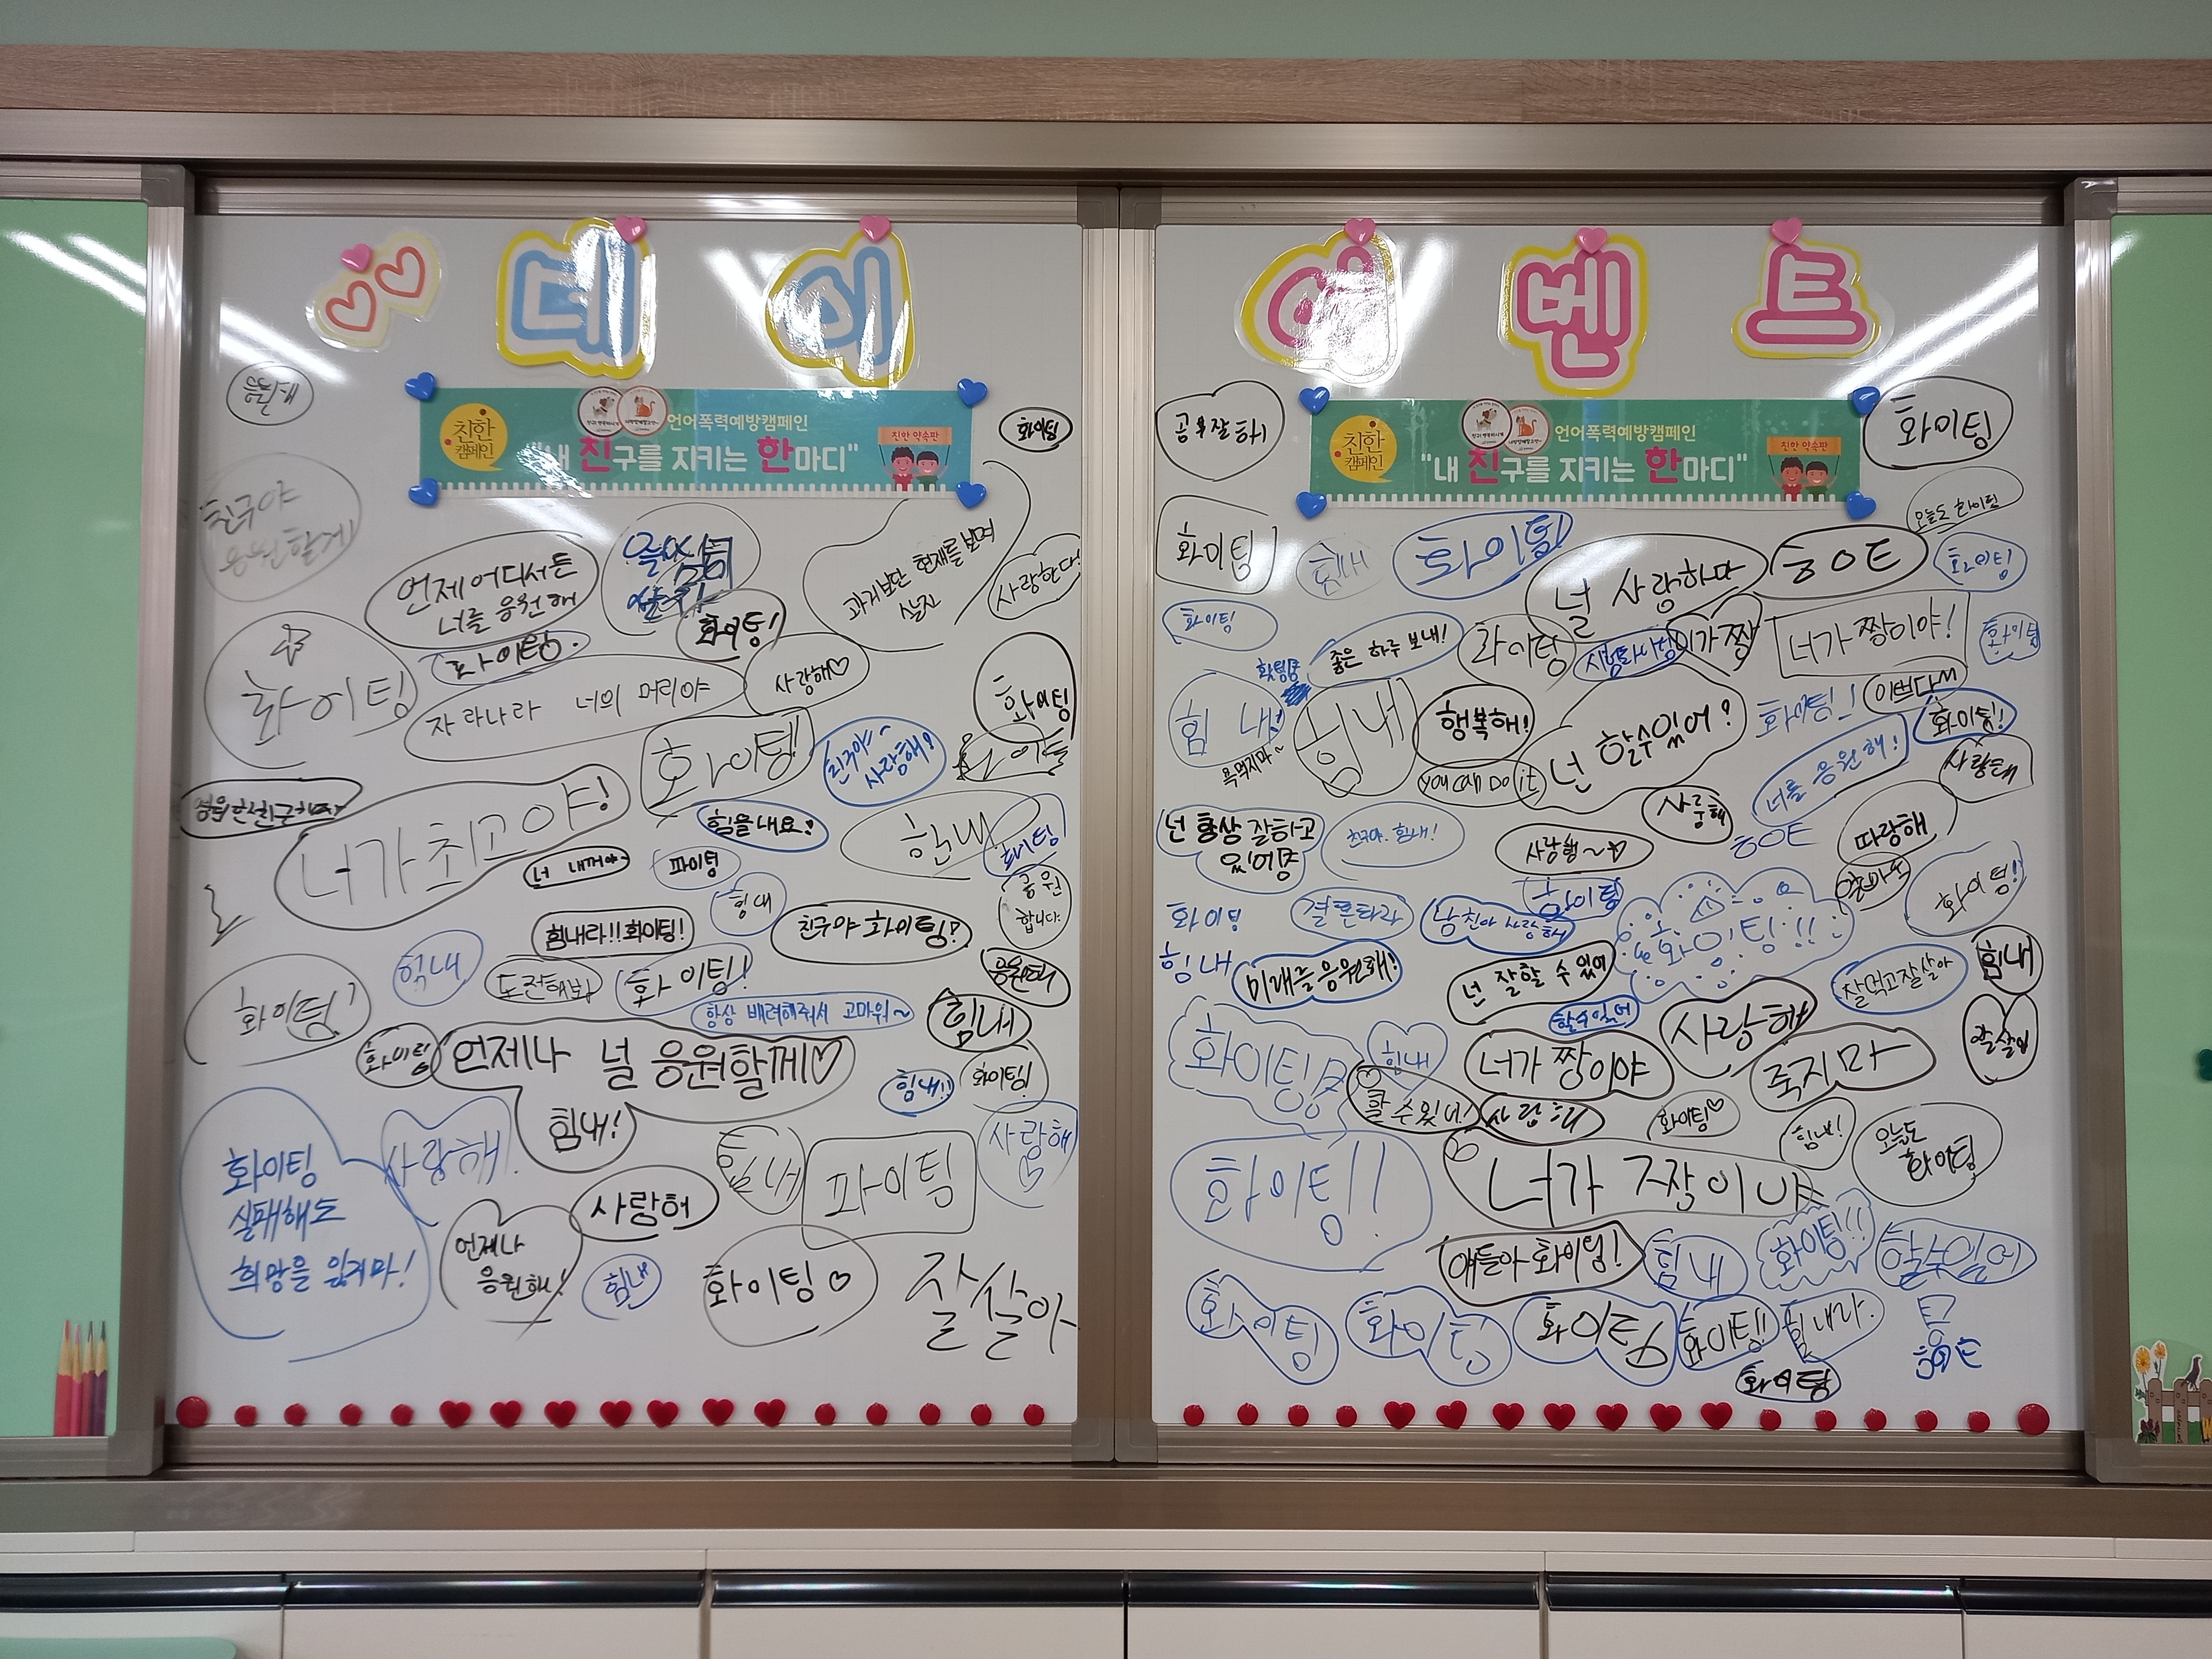 데이
이벤트
언어폭력예방캠페인
친한
캠페인
"내 친구를 지키는 한마디"
친한 약속판
언어폭력예방캠페인
친한
캠페인
"내 친구를 지키는 한마디"
친한 약속판
응원해
화이팅
친구야
응원할게
언제 어디서든
너를 응원해
파이팅.
화이팅!
과거보단 현재를 보며
살자
사랑한다
화이팅
자라나라 너의 머리야
사랑해♡
화이팅
화이팅!
친구야~
사랑해?
너가 최고야!
힘을내요!
힘내
화이팅
너 내꺼야
파이팅
힘내
응원
합니다.
힘내라!!화이팅!
친구야 화이팅!
힘내
도전해봐
화이팅!
응원해
화이팅!
항상 배려해줘서 고마워~
힘내
화이팅
언제나 널 응원할께♡
힘내!
힘내!!
화이팅!
화이팅
실패해도
희망을 잃지마!
사랑해
힘내
파이팅
사랑해
언제나
응원해!
사랑해
힘내
화이팅♡
잘살아
공부잘해
화이팅
화이팅
힘내
화이팅
널 사랑한다
ㅎㅇㅌ
오늘도 화이팅
화이팅
화이팅
좋은 하루 보내!
화이팅
너가 짱이야!
화이팅
힘내!
욕먹지마~
힘내
행복해!
you can Do it
넌 할수있어?
화이팅!!
이쁘다
화이팅!
너를 응원해!
사랑해
넌 항상 잘하고
있어
친구야. 힘내!
사랑해
ㅎㅇㅌ
따랑해
화이팅
힘내
화이팅
화이팅!
미래를응원해!
넌 잘할 수 있어
화이팅!!
잘먹고잘살아
힘내
할수있어
사랑해
화이팅
힘내
너가 짱이야
죽지마
할수있어!
화이팅♡
힘내!
오늘도
화이팅
화이팅!!
너가 짱이야
얘들아 화이팅!
힘내
화이팅!!
할수있어
화이팅
화이팅
화이팅
화이팅!!
힘내라.
화이팅